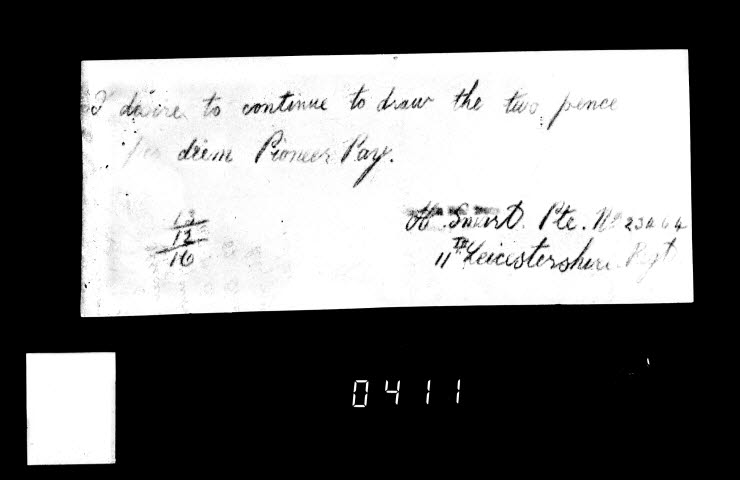 I desire to continue to draw the two pence
per diem Pioneer Pay.
13
12
16
H. Smart. Pte. No
11TH Leicistershire Regt
0411